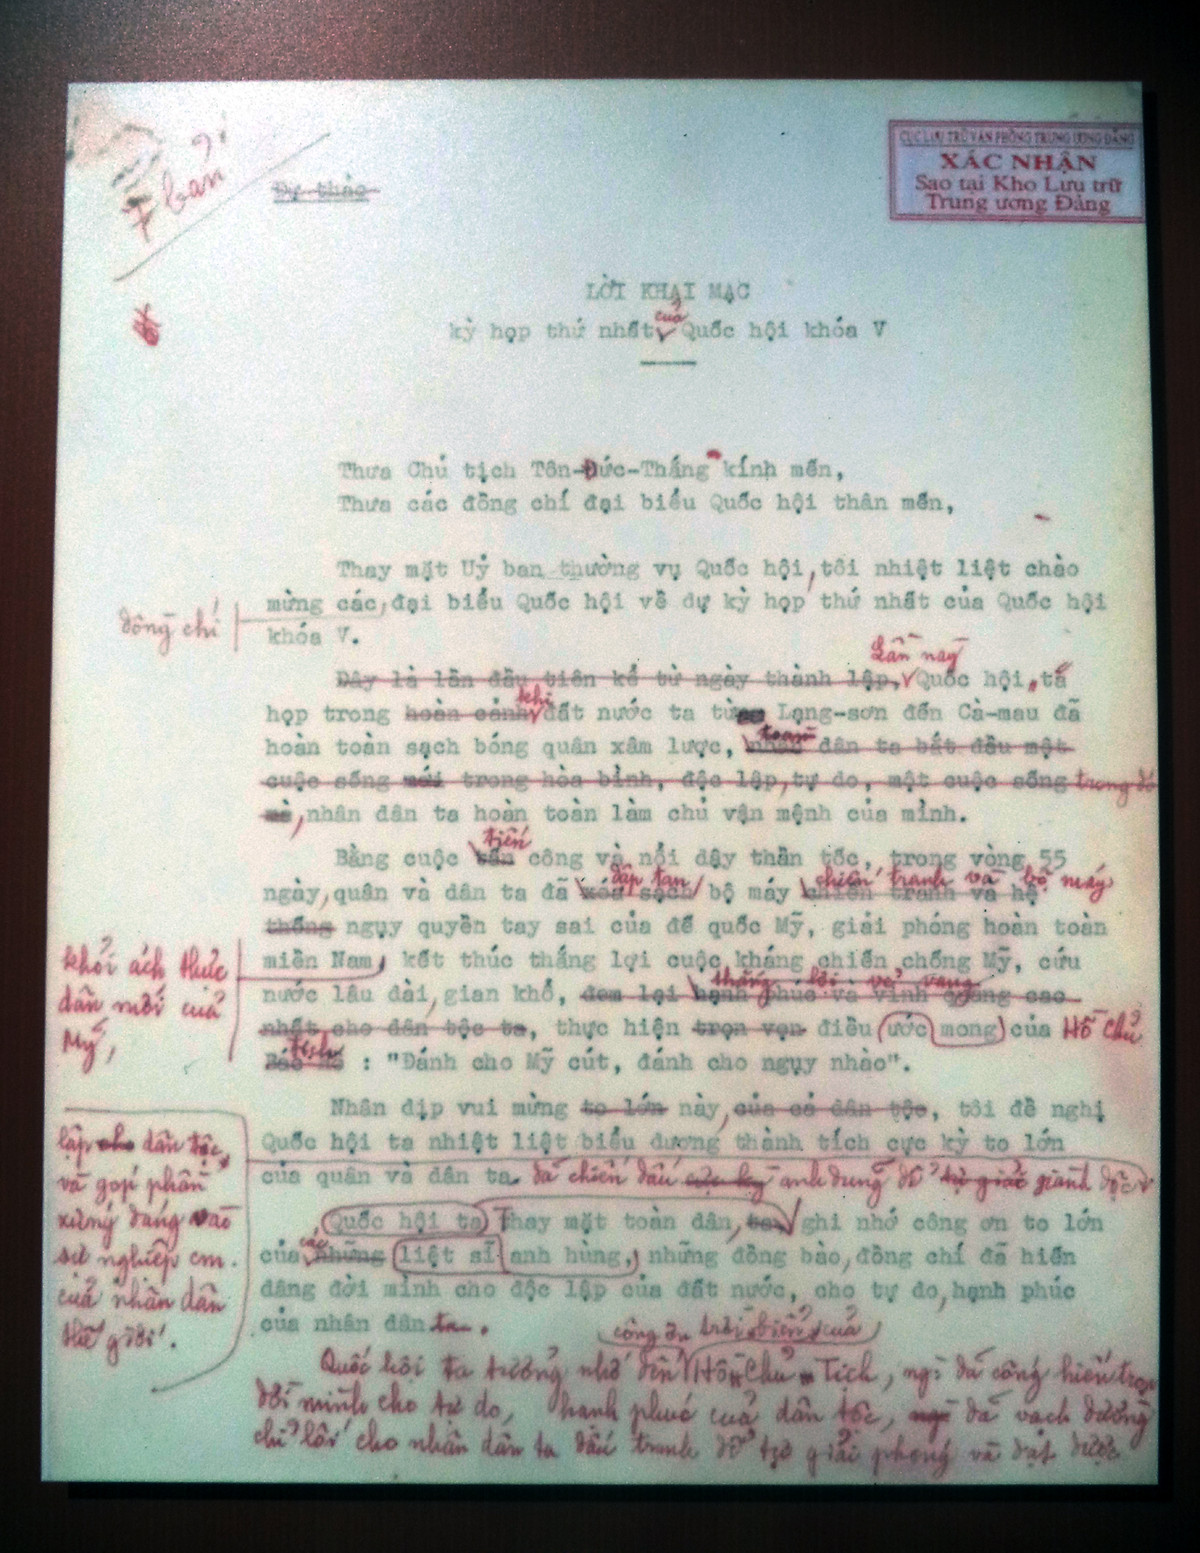 7 bản
Dự thảo
CỤC LƯU TRỮ VĂN PHÒNG TRUNG ƯƠNG ĐẢNG
XÁC NHẬN
Sao tại Kho Lưu trữ
Trung ương Đảng
LỜI KHAI MẠC
của
kỳ họp thứ nhất Quốc hội khóa V
Thưa Chủ tịch Tôn-Đức-Thắng kính mến,
Thưa các đồng chí đại biểu Quốc hội thân mến,
Thay mặt Uỷ ban thường vụ Quốc hội, tôi nhiệt liệt chào
mừng các, đại biểu Quốc hội về dự kỳ họp thứ nhất của Quốc hội
đồng chí
khóa V.
Lần này
Đây là lần đầu tiên kể từ ngày thành lập, Quốc hội ta
khi
họp trong hoàn cảnh đất nước ta từ Lạng-sơn đến Cà-mau đã
toàn
hoàn toàn sạch bóng quân xâm lược, nhân dân ta bắt đầu một
cuộc sống mới trong hòa bình, độc lập, tự do, một cuộc sống trong đó
mà, nhân dân ta hoàn toàn làm chủ vận mệnh của mình.
tiến
Bằng cuộc tấn công và nổi dậy thần tốc, trong vòng 55
đập tan chiến tranh và bộ máy
ngày, quân và dân ta đã xóa sạch bộ máy chiến tranh và hệ
thống ngụy quyền tay sai của đế quốc Mỹ, giải phóng hoàn toàn
miền Nam, kết thúc thắng lợi cuộc kháng chiến chống Mỹ, cứu
khỏi ách thực
dân mới của
Mỹ,
thắng lợi vẻ vang
nước lâu dài, gian khổ, đem lại hạnh phúc và vinh quang cao
nhất cho dân tộc ta, thực hiện trọn vẹn điều ước mong của Hồ Chủ
tịch
Bác Hồ : "Đánh cho Mỹ cút, đánh cho ngụy nhào".
Nhân dịp vui mừng to lớn này, của cả dân tộc, tôi đề nghị
Quốc hội ta nhiệt liệt biểu dương thành tích cực kỳ to lớn
của quân và dân ta. đã chiến đấu cực kỳ anh dũng để tự giác giành độc
lập cho dân tộc,
và góp phần
xứng đáng vào
sự nghiệp cm.
của nhân dân
thế giới.
Quốc hội ta Thay mặt toàn dân, ta, ghi nhớ công ơn to lớn
các
của những liệt sĩ anh hùng, những đồng bào, đồng chí đã hiến
dâng đời mình cho độc lập của đất nước, cho tự do, hạnh phúc
của nhân dân ta.
công ơn trời biển của
Quốc hội ta tưởng nhớ đến Hồ Chủ Tịch, ng: đã cống hiến trọn
đời mình cho tự do, hạnh phúc của dân tộc, đã vạch đường
chỉ lối cho nhân dân ta đấu tranh để tự giải phóng và đạt được